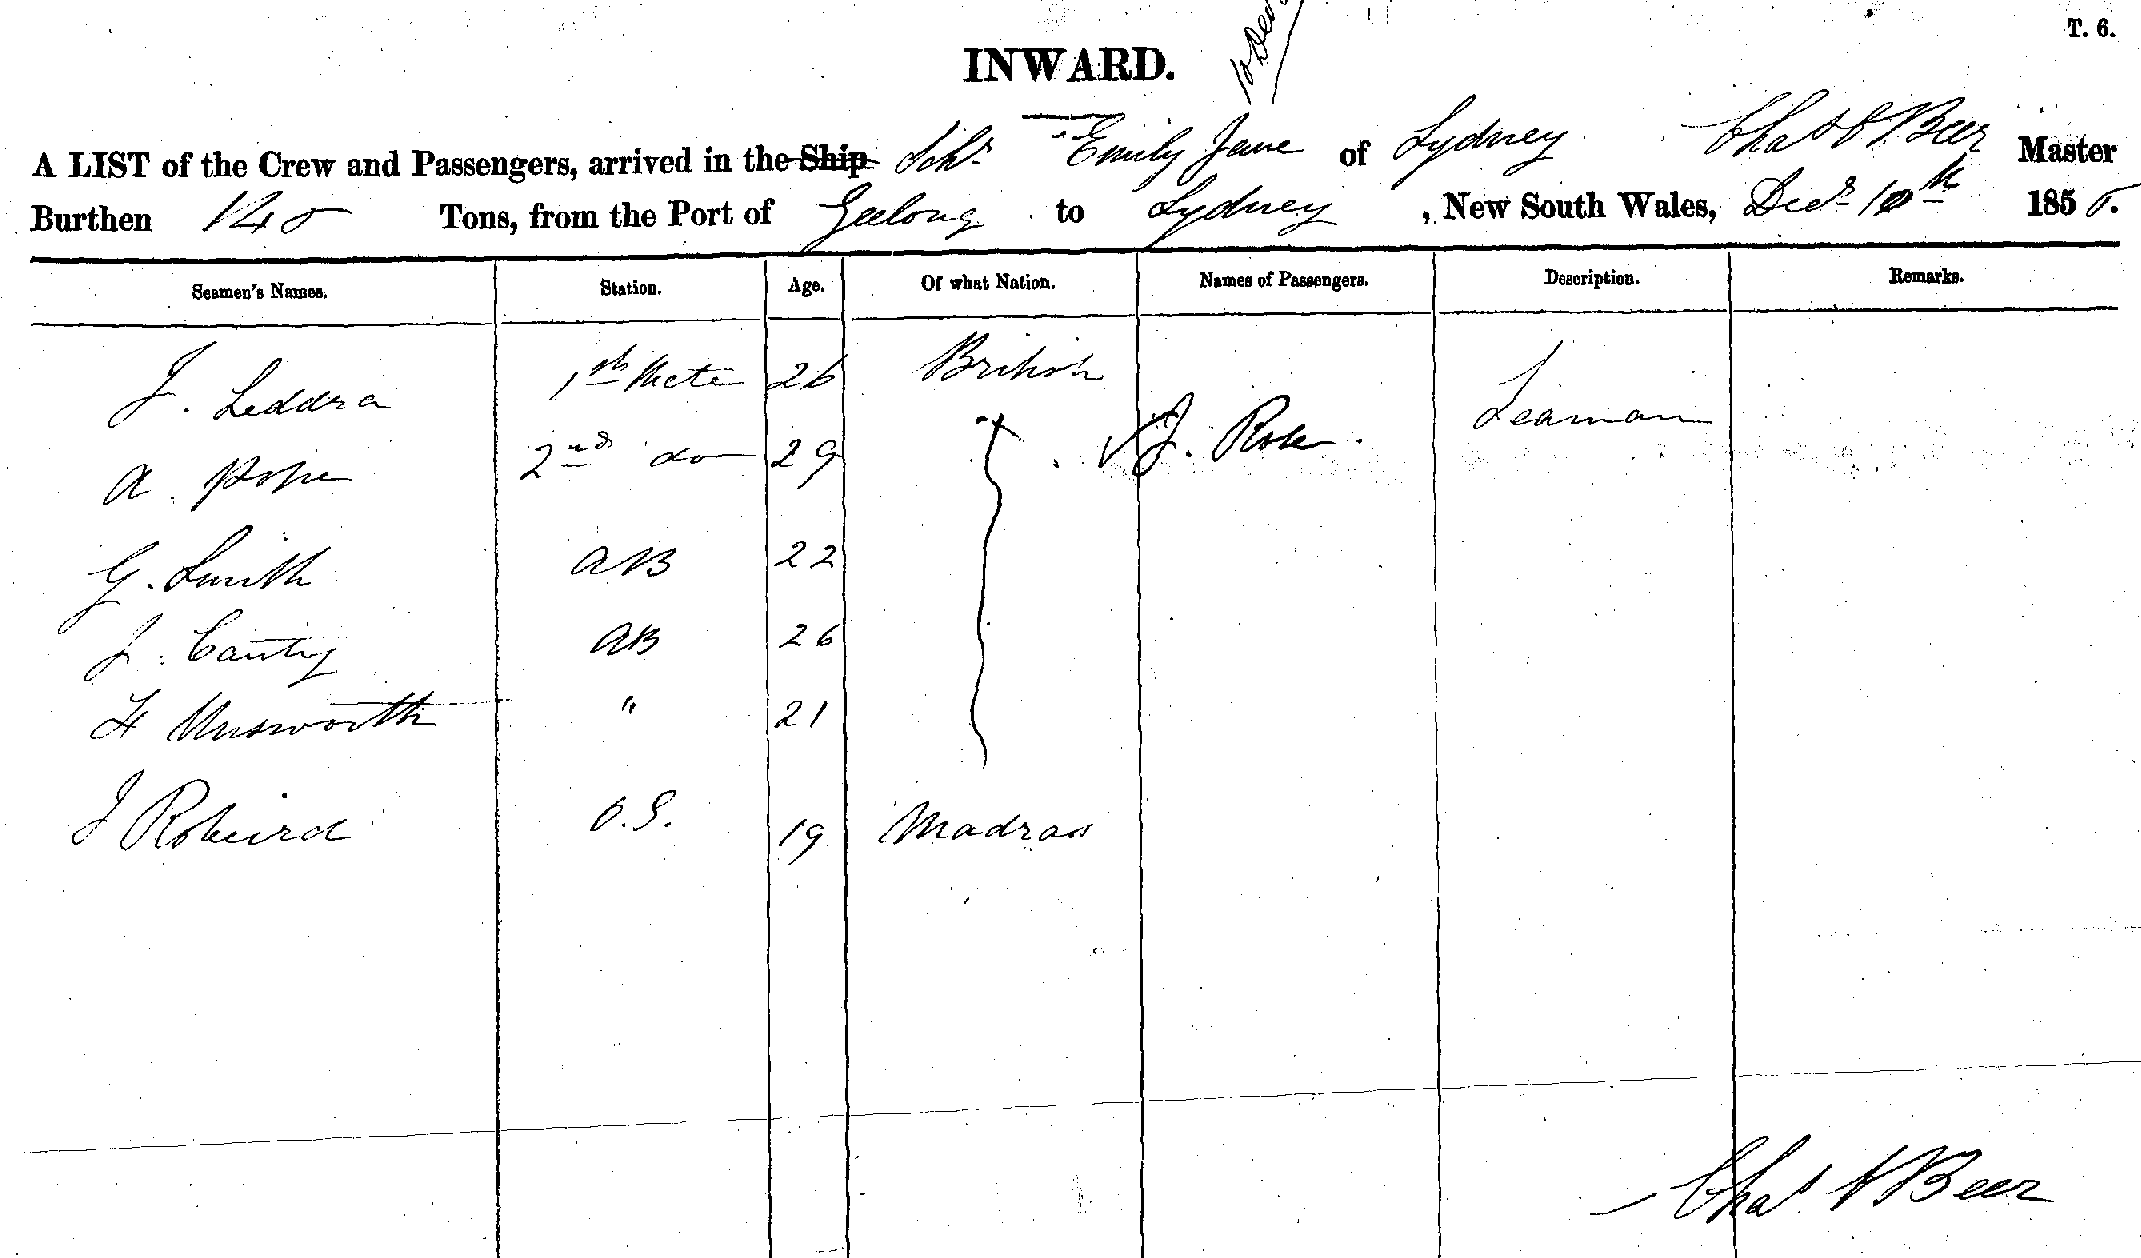 T. 6.
INWARD.
10 Dec
A LIST of the Crew and Passengers, arrived in the Ship Schr Emily Jane of Sydney Chas Beer Master
Burthen 140 Tons, from the Port of Geelong to Sydney, New South Wales, Decr 10th 185
Seamen's Names. Station. Age. Of what Nation. Names of Passengers. Description. Remarks.
J. Leddra 1st Mate 26 British
J. Seaman
A. Pope 2nd do 29
G. Smith AB 22
J. Canty AB 26
H Unsworth " 21
J O.S. 19 Madras
Chas Beer